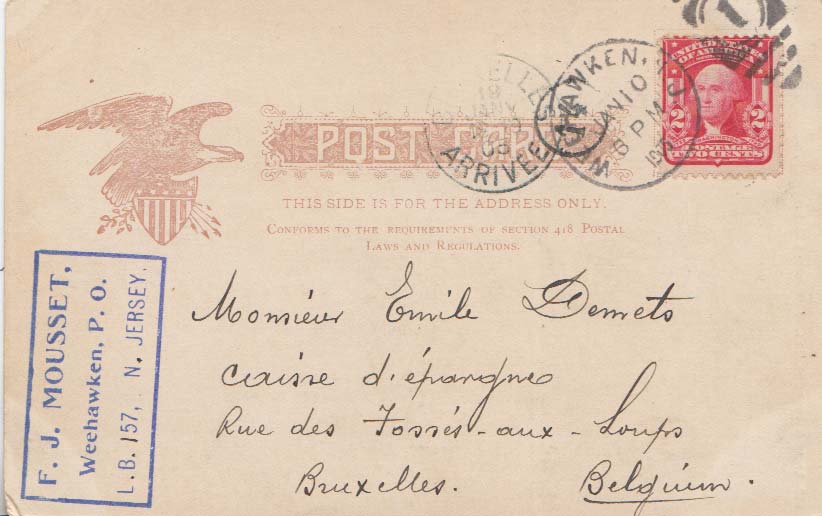 POST CARD
THIS SIDE IS FOR THE ADDRESS ONLY.
CONFORMS TO THE REQUIREMENTS OF SECTION 418 POSTAL
LAWS AND REGULATIONS.
UNITED STATES
OF AMERICA
2 2
POSTAGE
TWO CENTS
1
JAN 10
8 PM
N.J.
ARRIVEE
F. J. MOUSSET,
Weehawken, P. O.
L.B. 157, N. JERSEY.
Monsieur Emile Demets
caisse d'épargne
Rue des Fossés-aux-Loups
Bruxelles.
Belgium.